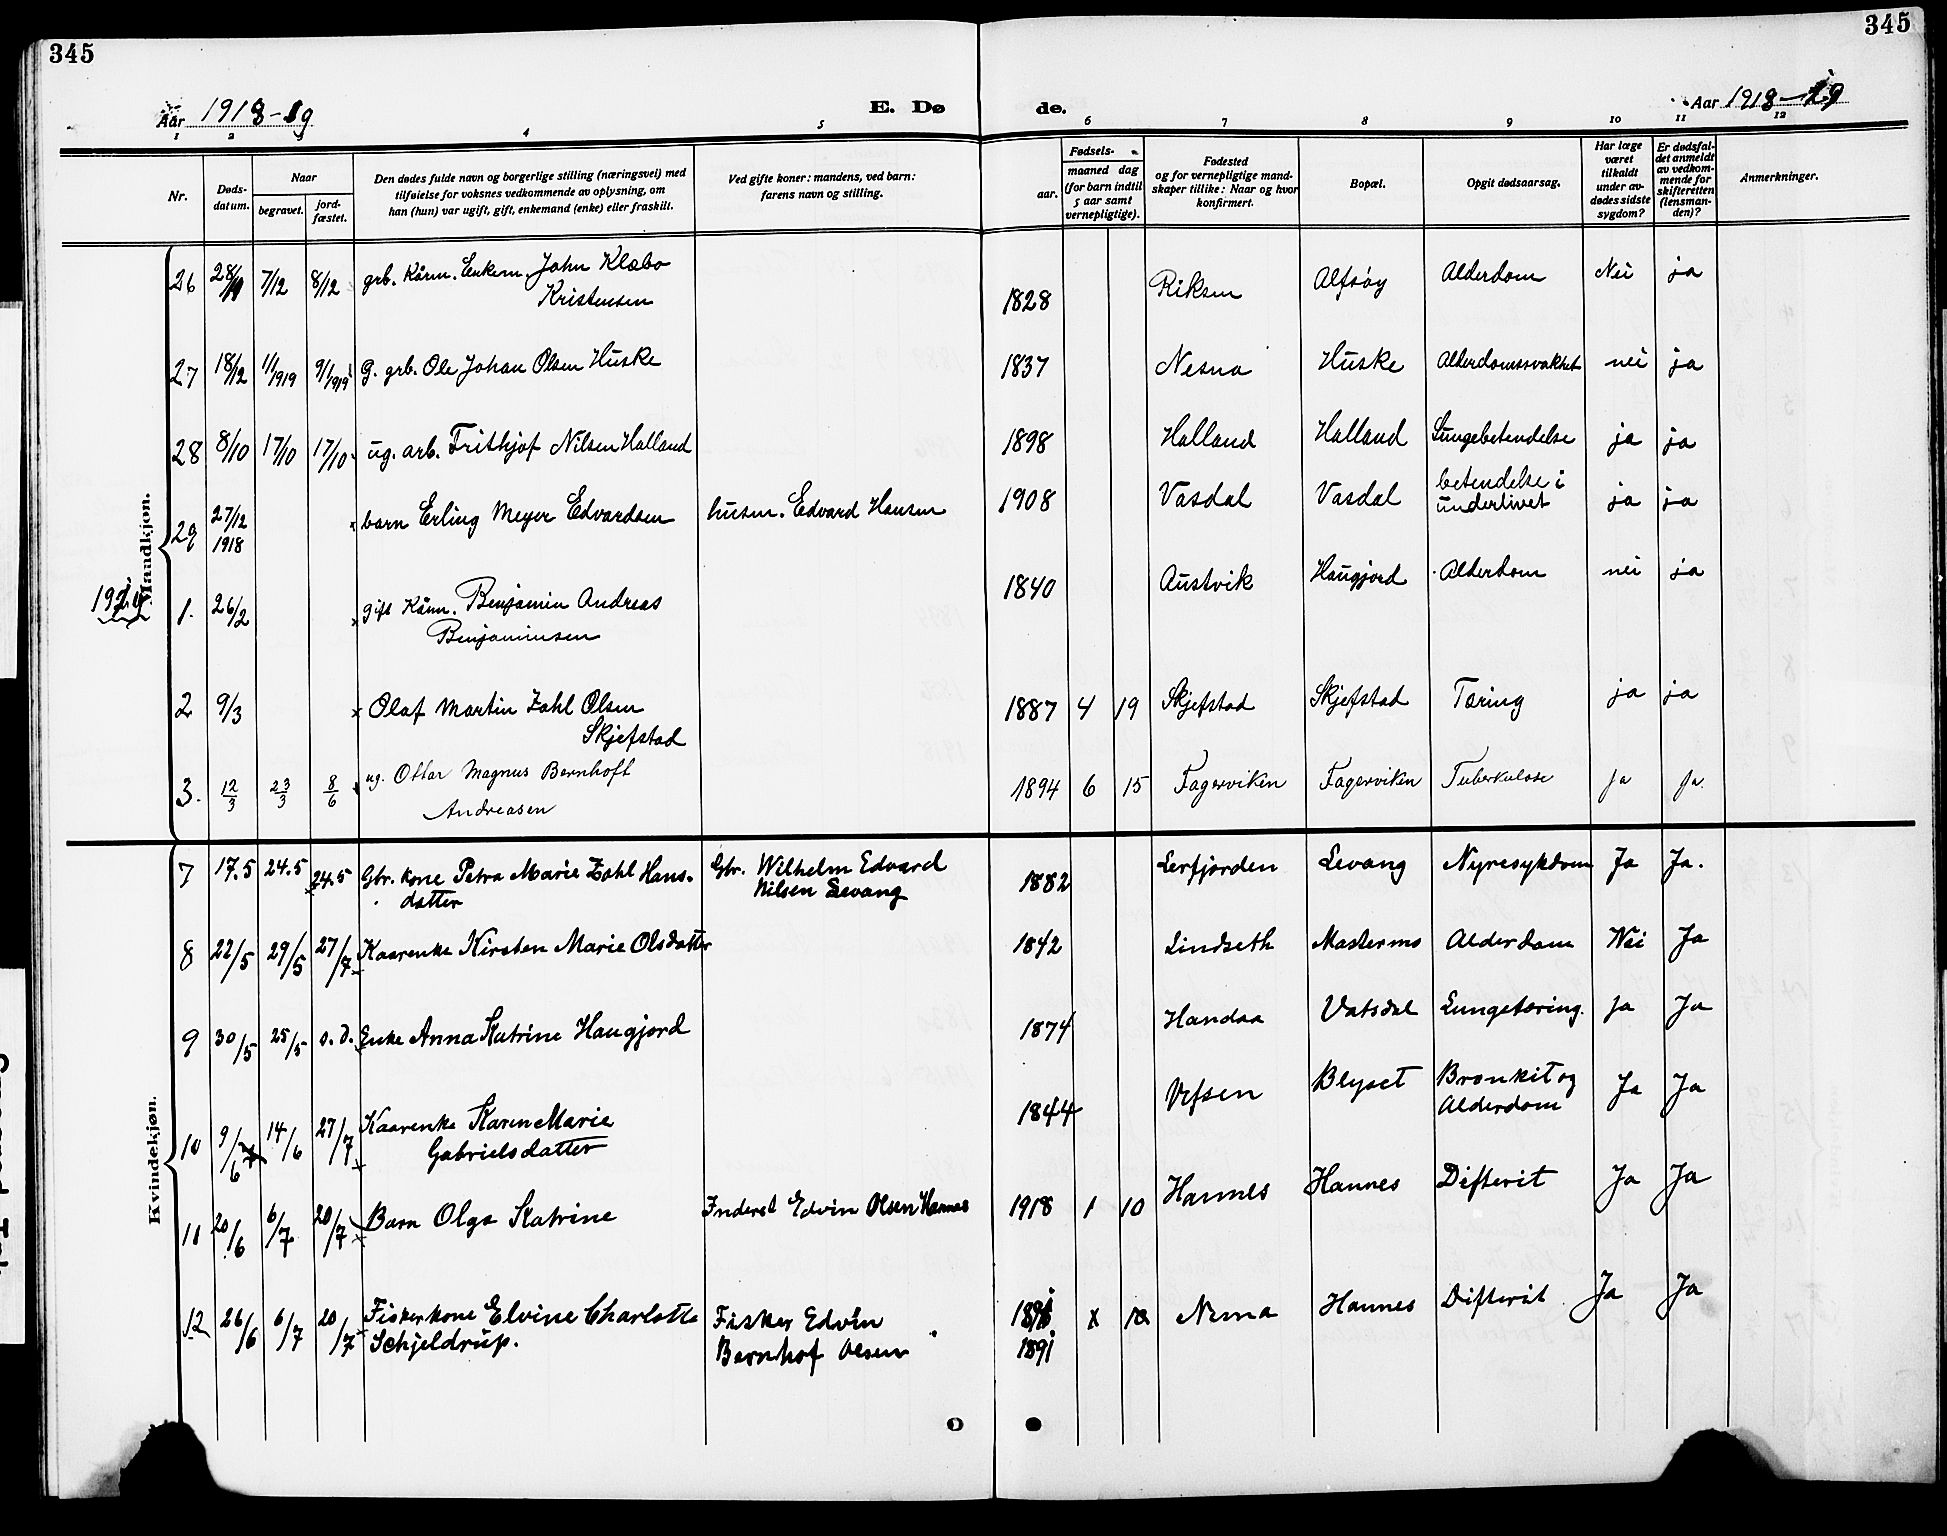 345
345
Aar 1918-19
E. Dø
de.
Aar 1918-19
1 2 4 5 6 7 8 9 10 11 12
Nr.
Døds-
datum.
Naar
begravet.
jord-
fæstet.
Den dødes fulde navn og borgerlige stilling (næringsvei) med
tilføielse for voksnes vedkommende av oplysning, om
han (hun) var ugift, gift, enkemand (enke) eller fraskilt.
Ved gifte koner: mandens, ved barn:
farens navn og stilling.
Fødsels-
aar.
maaned dag
(for barn indtil
5 aar samt
vernepligtige).
Fødested
og for vernepligtige mand-
skaper tillike: Naar og hvor
konfirmert.
Bopæl.
Opgit dødsaarsag.
Har læge
været
tilkaldt
under av-
dødes sidste
sygdom?
Er dødsfal-
det anmeldt
av vedkom-
mende for
skifteretten
(lensman-
den)?
Anmerkninger.
Mandkjøn.
26 28/11 7/12 8/12 grb. Kårm. Enkem. John Klæbo
Kristensen 1828 Alfsøy Alderdom Nei ja
27 18/12 1/1 1919 9/1 1919 G. grb. Ole Johan Olsen Huske 1837 Nesna Huske Alderdomssvakhet nei ja
28 8/10 17/10 17/10 ug. arb. Frithjof Nilsen Halland 1898 Halland Halland Lungebetendelse ja ja
29 27/12 1918 barn Erling Meyer Edvardsen husm. Edvard Hansen 1908 Vasdal Vasdal betendelse i
underlivet ja ja
1. 26/2 gift Kårm. Benjamin Andreas
Benjaminsen 1840 Austvik Haugjord Alderdom nei ja
2 9/3 x Olaf Martin Zahl Olsen
Skjefstad 1887 4 19 Skjefstad Skjefstad Tæring ja ja
3. 12/3 23/3 8/6 ug. Ottar Magnus Bernhoft
Andreasen 1894 6 15 Fagerviken Fagerviken Tuberkulose Ja Ja.
Kvindekjøn.
7 17.5 24.5 24.5 Gbr. kone Petra Marie Zahl Hans-
datter Gbr. Wilhelm Edvard
Nilsen Levang 1882 Leirfjorden Levang Nyresykdom Ja Ja.
8 22/5 29/5 27/7 Kaarenke Kirsten Marie Olsdatter 1842 Lindseth Mastermo Alderdom Nei Ja
9 30/5 25/5 s.d. Enke Anna Katrine Haugjord 1874 Handaa Vatsdal Lungetæring. Ja Ja
10 9/6 14/6 27/7 Kaarenke Karen Marie
Gabrielsdatter 1844 Vefsen Blyset Bronkit og
Alderdom Ja Ja
11 20/6 6/7 20/7 Barn Olga Katrine Inderst Edvin Olsen Hannes 1918 1 10 Hannes Hannes Difterit Ja Ja
12 26/6 6/7 20/7 Fiskerkone Elvine Charlotte
Schjeldrup. Fisker Edvin
Bernhof Olsen 1891
1891 Nesna Hannes Difterit Ja Ja